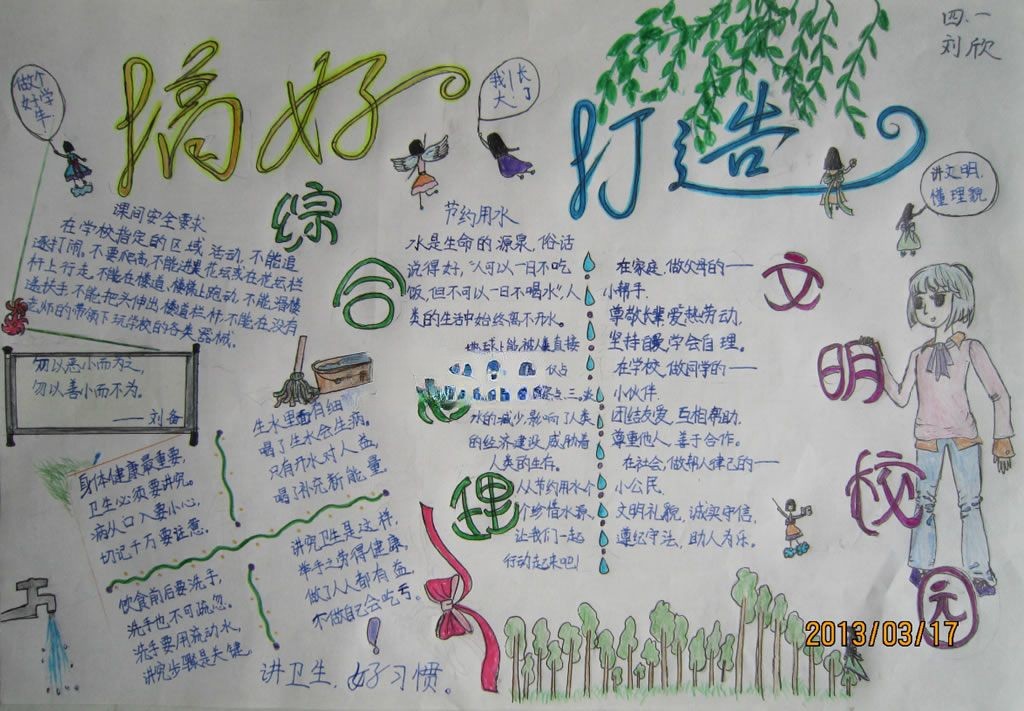 四、一
刘欣
搞好
打造
综
合
治
理
文
明
校
园
做个
好学
生!
我长
大了!
讲文明,
懂理貌
课间安全要求
在学校指定的区域活动,不能追
逐打闹。不要爬高不能进果花坛或在花坛栏
杆上行走。不能在楼道、楼梯上跑动,不能滑楼
梯扶手,不能把头伸出楼道栏杆,不能在没有
老师的带领下玩学校的各类器械。
勿以恶小而为之,
勿以善小而不为。
——刘备
节约用水
水是生命的源泉,俗话
说得好,“人可以一日不吃
饭,但不可以一日不喝水”,人
类的生活中始终离不开水。
地球上能被人类直接
仅占
水的减少,影响了人类
的经济建设,威胁着
人类的生存。
从节约用水个
个珍惜水源、
让我们一起
行动起来吧!
在家庭,做父母的一一
小帮手.
尊敬长辈,爱热劳动,
坚持自学会自理。
在学校,做同学的一一
小伙伴.
团结友爱,互相帮助,
尊重他人,善于合作。
在社会,做帮人律己的一一
小公民.
文明礼貌,诚实守信,
遵纪守法,助人为乐。
生水里面有细
喝了生水会生病。
只有开水对人益,
喝了补充新能量.
身体健康最重要,
卫生必须要讲究。
病从口入要小心,
切记千万要注意.
讲究卫生是这样,
举手之劳得健康,
做了人人都有益,
不做自己会吃亏。
饮食前后要洗手,
洗手也不可疏忽。
洗手要用流动水,
讲究步骤是关键.
讲卫生,好习惯。
2013/03/17